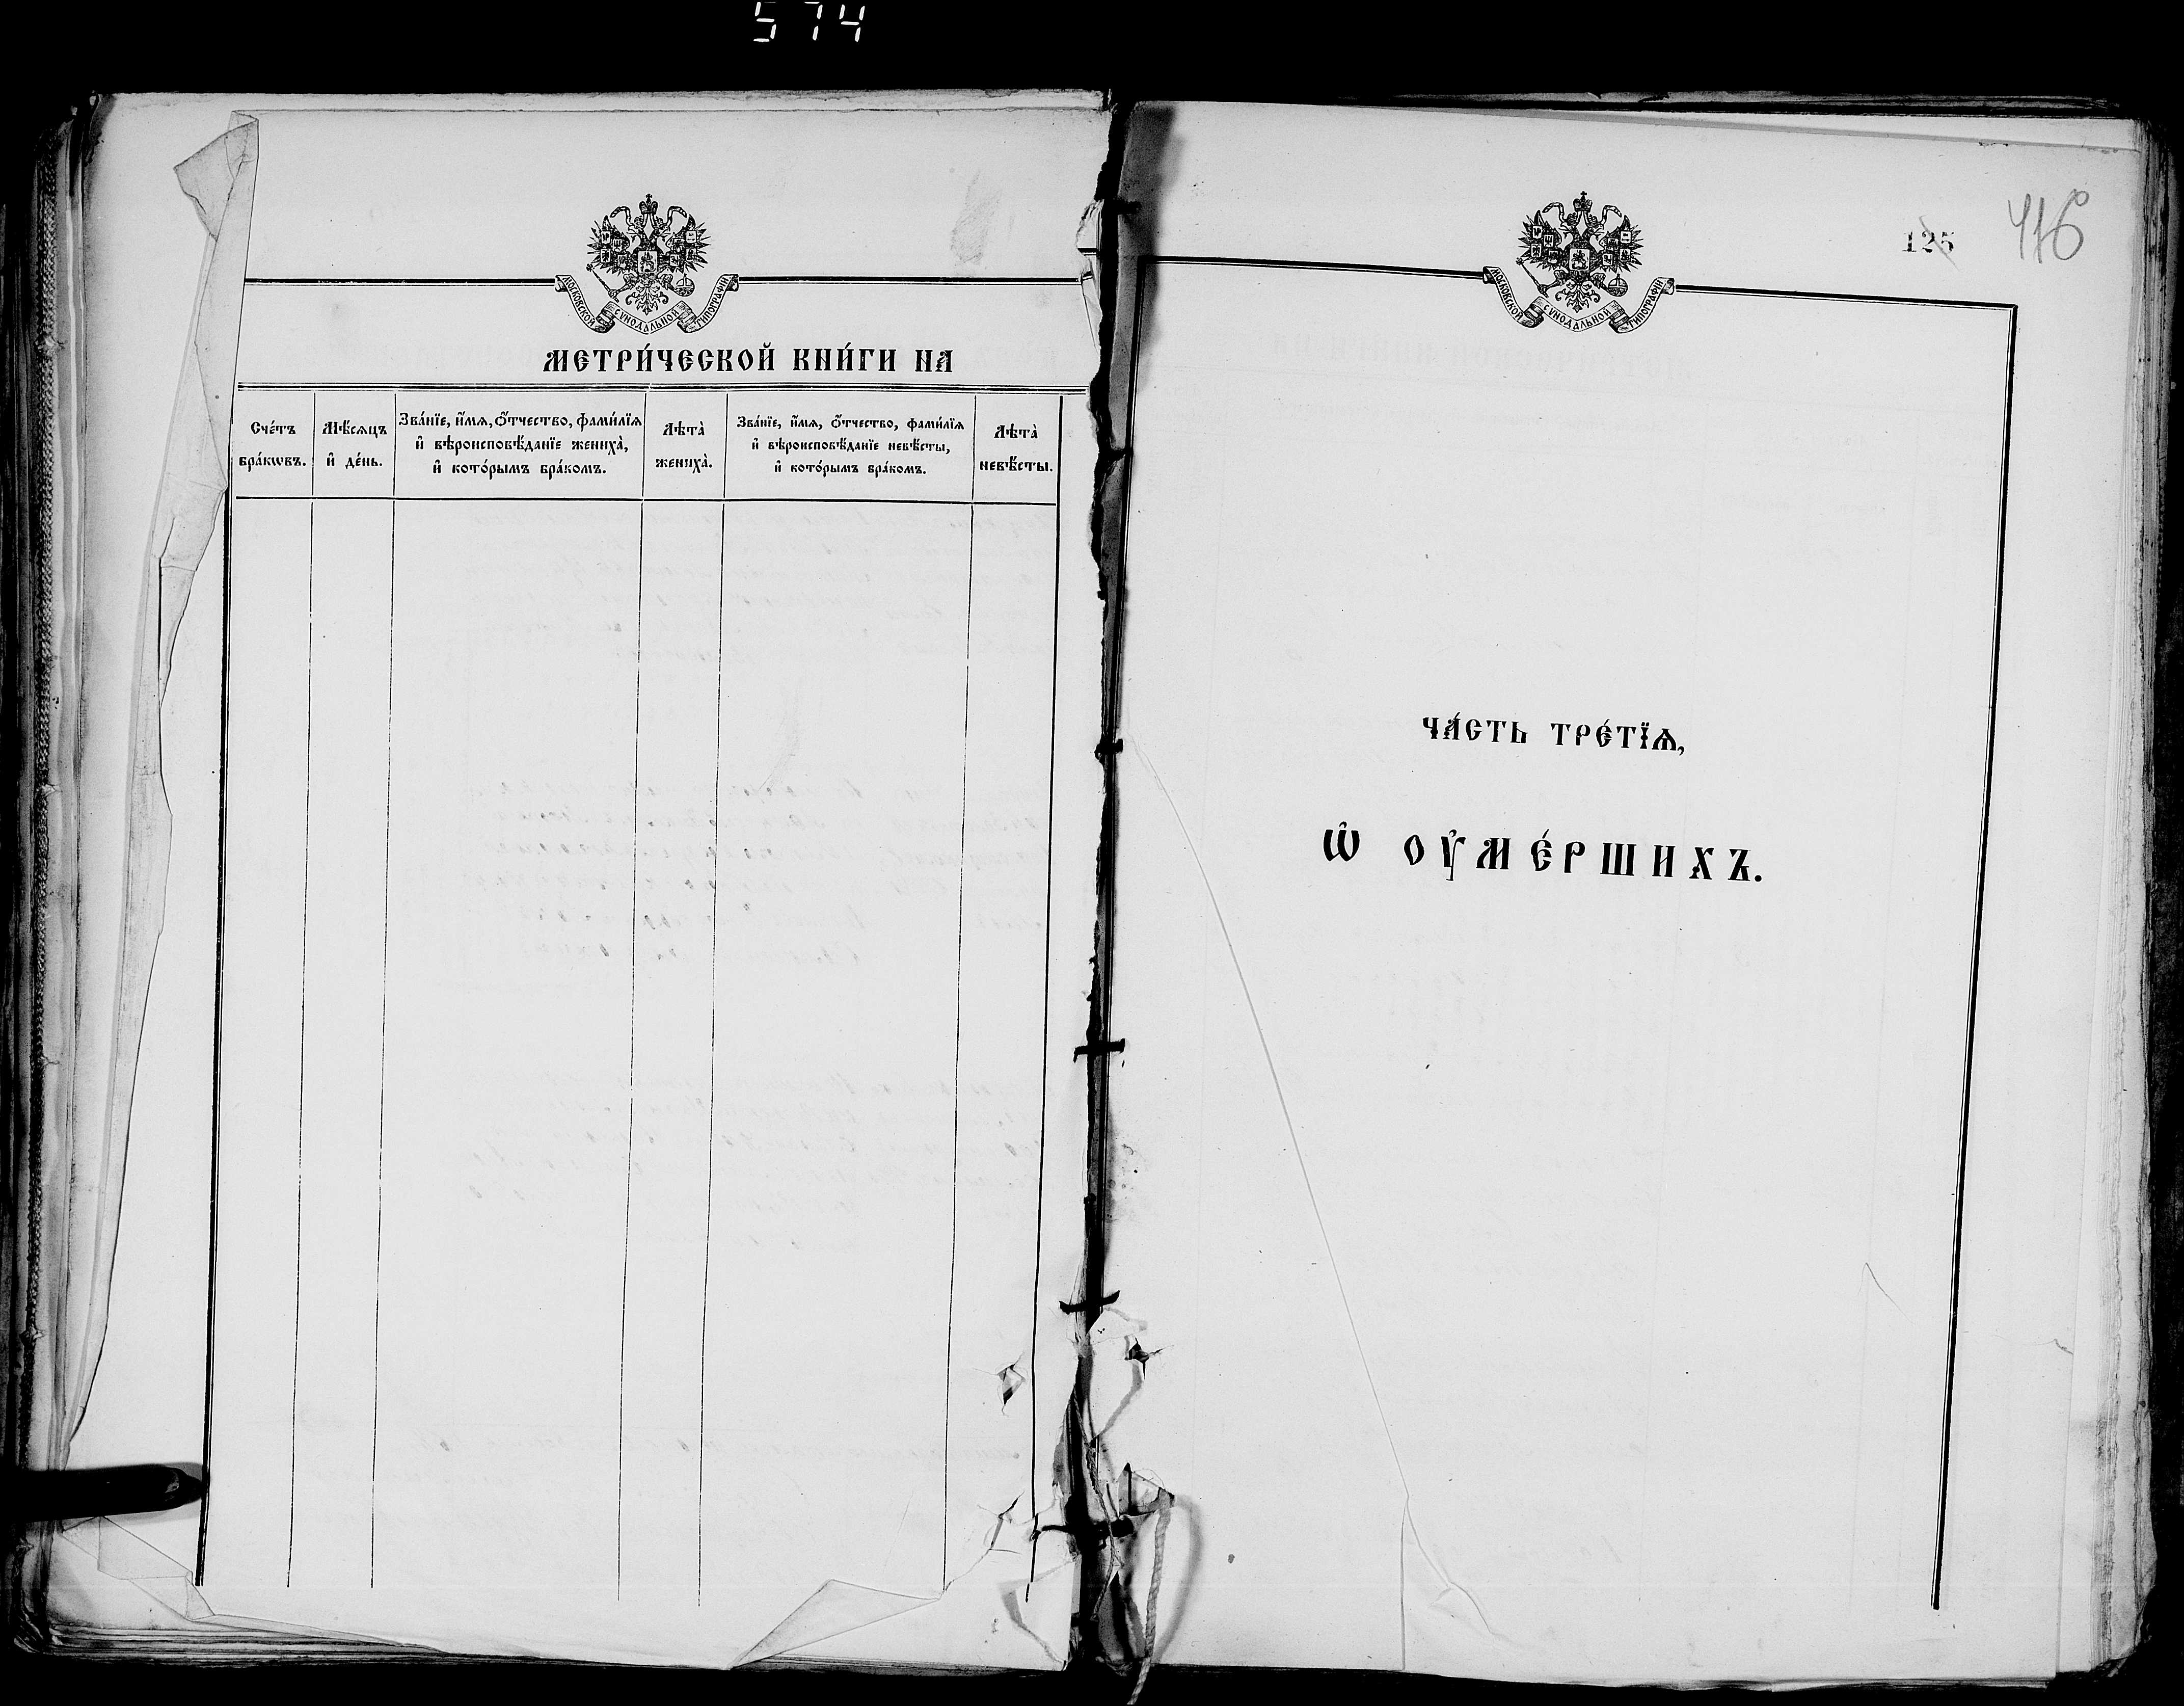 574
МОСКОВСКОЙ СѴНОДАЛЬНОЙ ТИПОГРАФІИ
МЕТРИ́ЧЕСКОЙ КНИ́ГИ НА
Сче́тъ бра́кѡвъ.
Мѣ́сѧцъ и҆ де́нь.
Зва́нїе, и҆́мѧ, ѻ҆́тчество, фами́лїѧ
и҆ вѣроисповѣ́данїе жениха̀,
и҆ кото́рымъ бра́комъ.
Лѣта̀ жениха̀.
Зва́нїе, и҆́мѧ, ѻ҆́тчество, фами́лїѧ
и҆ вѣроисповѣ́данїе невѣ́сты,
и҆ кото́рымъ бра́комъ.
Лѣта̀ невѣ́сты.
МОСКОВСКОЙ СѴНОДАЛЬНОЙ ТИПОГРАФІИ
125
116
ЧА́СТЬ ТРЕ́ТЇѦ,
Ѡ҆ ОУ҆МЕ́РШИХЪ.